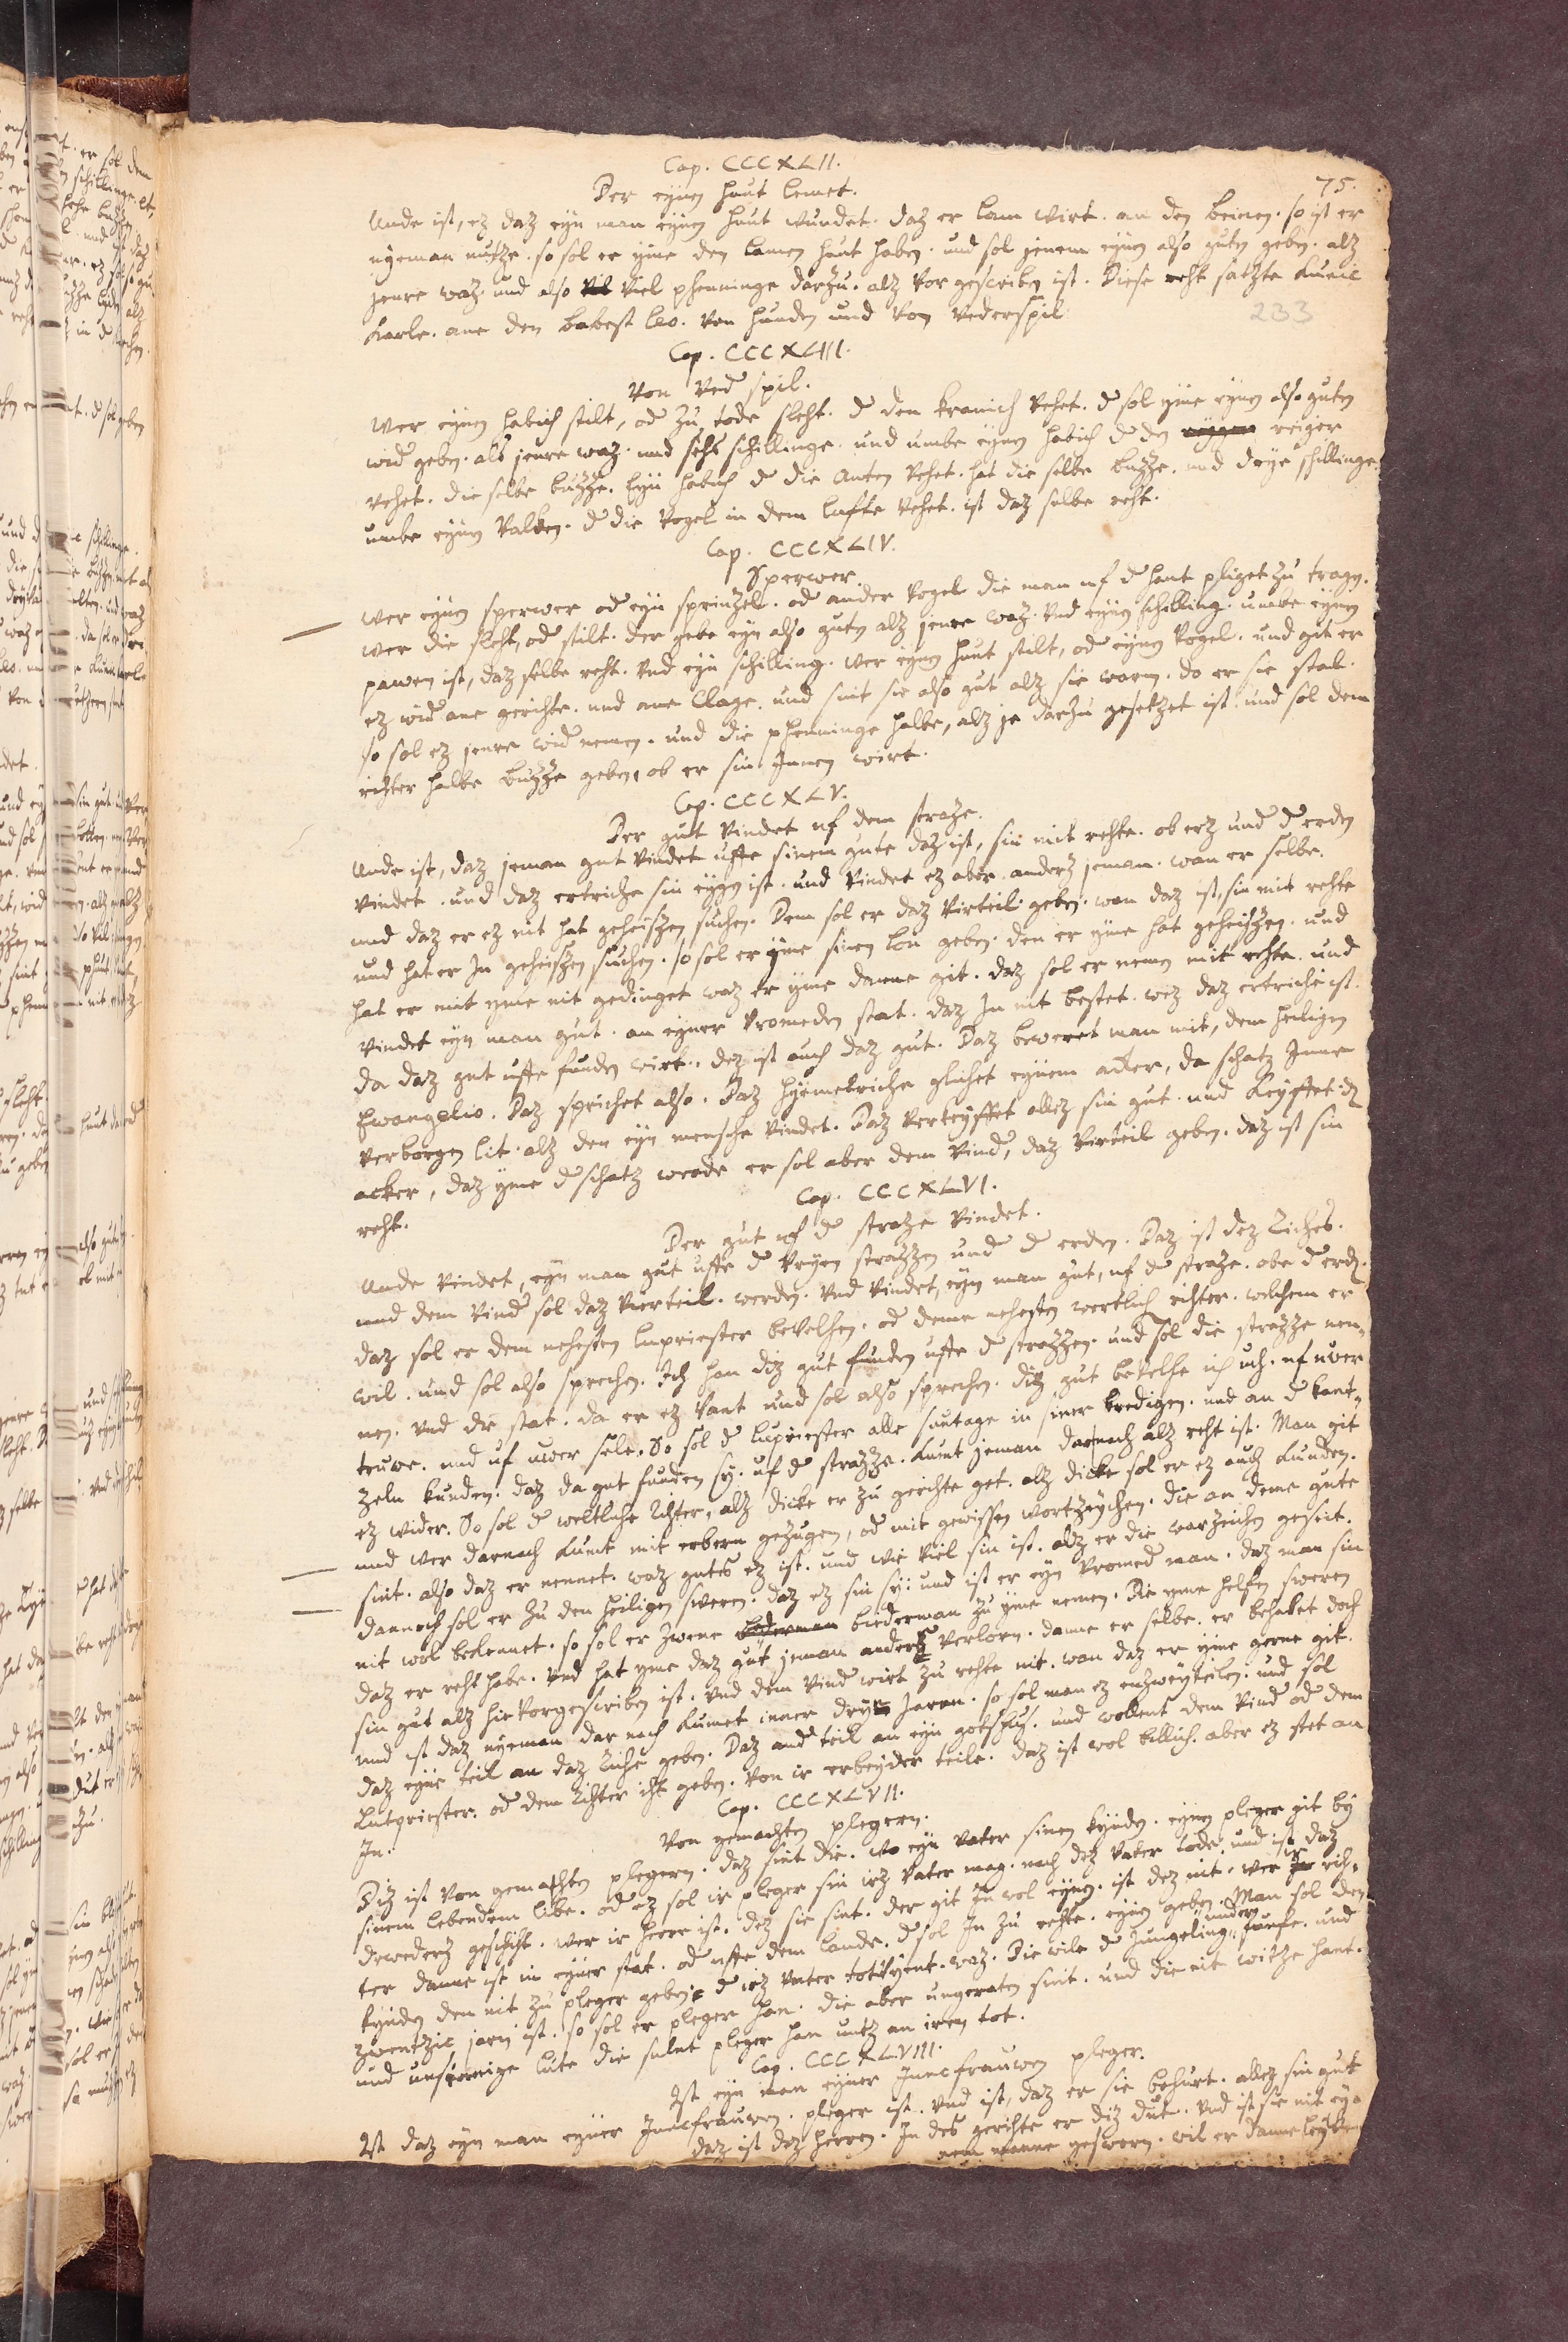 75.
Cap. CCCXLII.
Der eynen hunt lemet.
Unde ist, ez daz eyn man eynen hunt wundet. daz er lam wirt. an den beinen. so ist er
nyeman nutze. so sol er yme den lamen hunt haben. und sol jenem eynen also guten geben. alz
jenre waz. und also viel phenninge darzu. alz vor gescriben ist. Diese reht satzte kunic
karle. ane den babest leo. von hunden und von vederspil
233
Cap. CCCXLIII.
Von ved spil.
Wer eynen habich stilt, od zu tode sleht. d den kranich vehet. d sol yme eynen also guten
wid geben. als jenre waz. und sehs schillinge. und umbe eynen habich d den reiger
vehet. die selbe buzze. Eyn habich d die Anten vehet. hat die selbe buzze. und drye schillinge.
umbe eynen valken. d die vogel in dem lufte vehet. ist daz selbe reht.
Cap. CCCXLIV.
Sperwer.
Wer eynen sperwer od eyn sprinzel. od ander vogel die man uf d hant pliget zu tragen.
wer die sleht, od stilt. der gebe eyn also guten alz jenre waz. und eynen schilling. umbe eynen
pawen ist, daz selbe reht. und eyn schilling. wer eynen hunt stilt, od eynen vogel. und git er
ez wid ane gerichte. und ane clage. und sint sie also gut alz sie waren. do er sie stal.
so sol ez jenre wid nemen. und die phenninge halbe, alz je darzu gesetzet ist. und sol dem
rihter halbe buzze geben, ob er sin Innen wirt.
Cap. CCCXLV.
Der gut vindet uf dem straze.
Unde ist, daz jeman gut vindet uffe sinem gute daz ist, sin mit rehte. ob erz und d erden
vindet. und daz ertriche sin eygen ist. und vindet ez aber. anderz jeman. wan er selbe.
und daz er ez nit hat geheiszen suchen. Dem sol er daz virteil geben. wan daz ist, sin mit rehte
und hat er In geheiszen suchen. so sol er yme sinen lon geben. den er yme hat geheiszen. und
hat er mit yme nit gedinget waz er yme danne git. daz sol er nemen mit rehte. und
vindet eyn man gut. an eyner vromeden stat. daz In nit bestet. wez daz ertriche ist.
da daz gut uffe funden wirt. dez ist auch daz gut. Daz beweret man mit, dem heiligen
Ewangelio. Daz sprichet also. Daz hyemelriche glichet eynem acker, da schatz Inne
verborgen lit. alz den eyn mensche vindet. Daz verkeyffet allez sin gut. und keyffet dz
acker, daz yme d schatz werde er sol aber dem vind, daz virteil geben. daz ist sin
reht.
Cap. CCCXLVI.
Der gut uf d straze vindet.
Unde vindet, eyn man gut uffe d vryen strazzen und d erden. Daz ist dez Riches.
und dem vind sol daz vierteil. werden. Und vindet, eyn man gut, uf d straze. obe d erden.
daz sol er dem nehesten lupriester bevelhen. od deme nehesten wertlich rihter. welchem er
wil. und sol also sprechen. Ich han diz gut funden uffe d strazzen. und sol die strazze nen¬
nen. Und die stat. da er ez vant und sol also sprechen. diz gut bevelhe ich uch. uf uwer
truwe. und uf uwer sele. So sol d lupriester alle suntage in siner bredigen. und an d kant¬
zeln kunden. daz da gut funden sy. uf d strazze. kumt jeman darnach alz reht ist. Man git
ez wider. So sol d weltliche Rihter, alz dicke er zu gerichte get. alz dicke sol er ez auch kunden.
und wer darnach kumt mit erbern gezugen, od mit gewissen wortzeychen. die an deme gute
sint. also daz er nennet. waz gutes ez ist. und wie viel sin ist. alz er die warzeichen geseit.
dannoch sol er zu den heiligen sweren. daz ez sin sy. und ist er eyn vromed man. daz man sin
nit wol bekennet. so sol er zwene biederman zu yme nemen. Die yme helfen sweren
daz er reht habe. Und hat yme daz gut jeman anderz verlorn. danne er selbe. er behabet doch
sin gut alz hie vorgescriben ist. Und dem vind wirt zu rehte nit. wan daz er yme gerne git.
und ist daz nyeman dar nach kumet inner dryn Jaren. so sol man ez enzweyteilen. und sol
daz eyne teil an daz Riche geben. Daz and teil an eyn gotshus. und wollent dem vind od dem
Lutpriester. od dem Rihter iht geben. von ir erbeyder teile. daz ist wol billich. aber ez stet an
In.
Cap. CCCXLVII.
Von gemachten plegern.
Diz ist von gemachten plegern. daz sint die. wo eyn vater sinen kynden. eynen pleger git by
sinem lebendem libe. od ez sol ir pleger sin irz vater mag. nach dez vater tode. und ist daz
dewederz geschiht. wer ir herre ist. dez sie sint. der git In wol eynen. ist dez nit. wer ir rih¬
ter danne ist in eyner stat. od uffe dem lande. d sol In zu rehte. eynen geben. Man sol den
kynden den nit zu pleger geben. d irz vater totvyent. waz. Die wile d Jungeling. undern funfe. und
zwentzic jaren ist. so sol er pleger han. die aber ungeraten sint. und die nit witze hant.
und unsinnige lute die sulnt pleger han untz an iren tot.
Cap. CCCXLVIII.
Ist eyn man eyner Juncfrauwen pleger.
Ist daz eyn man eyner Juncfrauwen. pleger ist. und ist, daz er sie behurt. allez sin gut
daz ist dez herren. In des gerichte er diz dut. Und ist sie nit ey¬
nem manne geswern. wil er danne